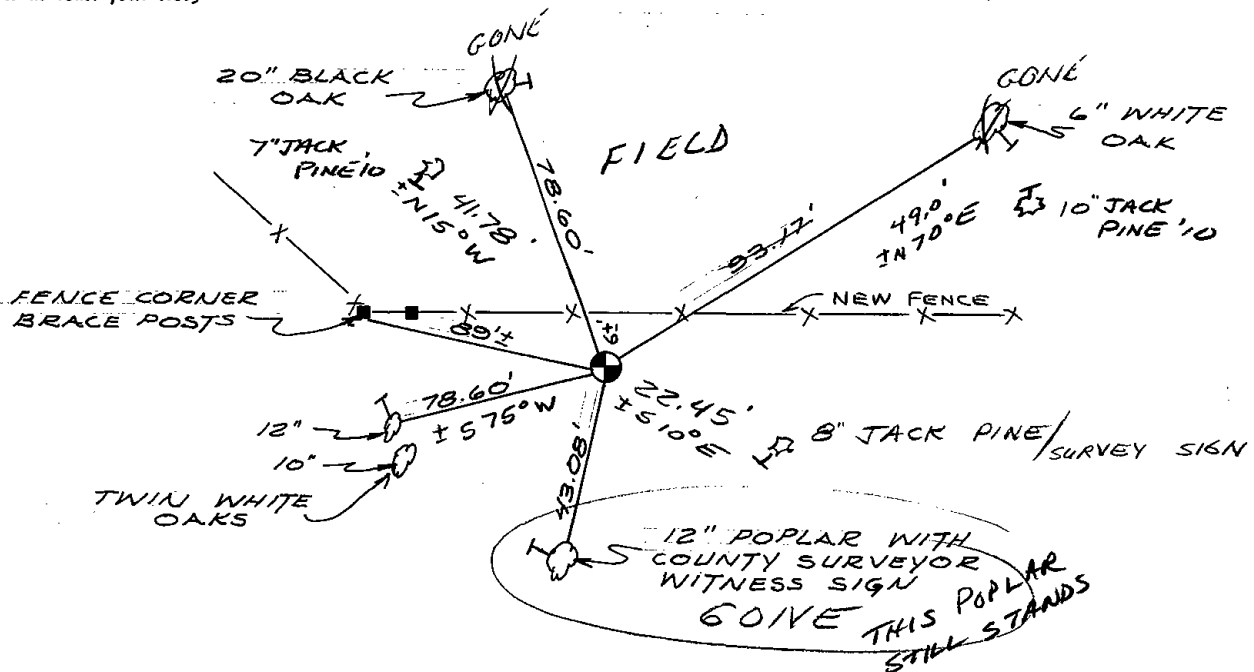 GONE
20" BLACK
OAK
78.60'
7" JACK
PINE '10
41.78'
± N 15° W
FIELD
GONE
6" WHITE
OAK
93.17'
49.0'
± N 70° E
10" JACK
PINE '10
FENCE CORNER
BRACE POSTS
89'±
NEW FENCE
9'±
78.60'
± S 75° W
12"
10"
TWIN WHITE
OAKS
22.45'
± S 10° E
8" JACK PINE/SURVEY SIGN
43.08'
12" POPLAR WITH
COUNTY SURVEYOR
WITNESS SIGN
GONE
THIS POPLAR
STILL STANDS